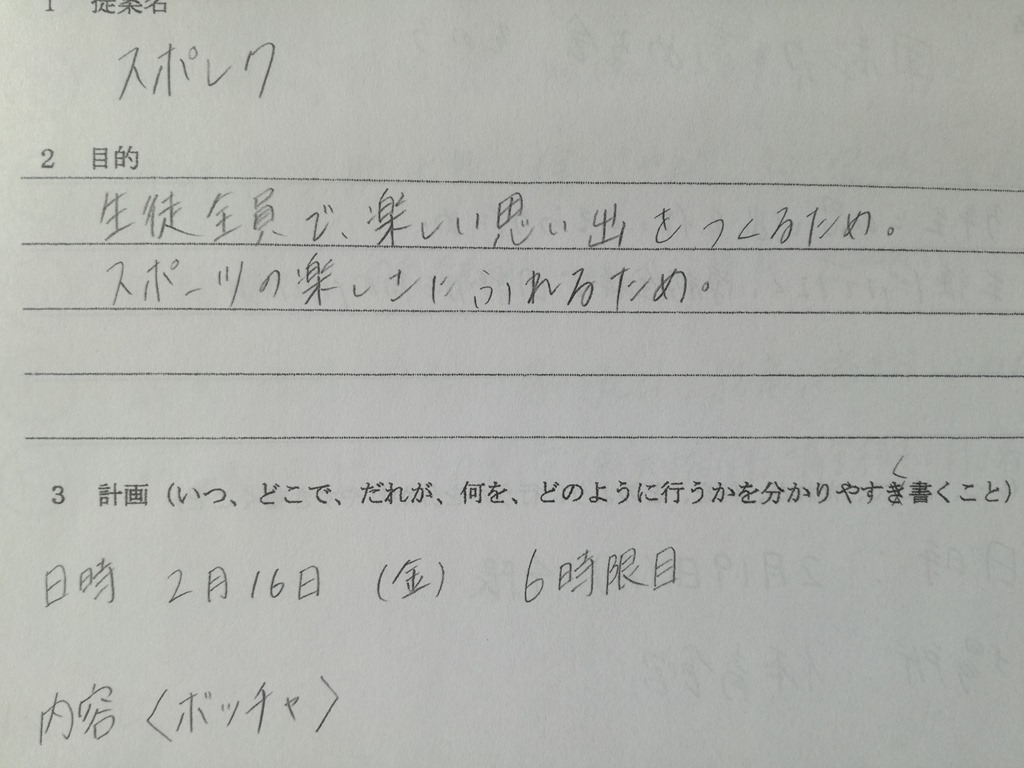 1 提案名
スポレク
2 目的
生徒全員で、楽しい思い出をつくるため。
スポーツの楽しさにふれるため。
3 計画(いつ、どこで、だれが、何を、どのように行うかを分かりやすく書くこと)
日時 2月16日 (金) 6時限目
内容〈ボッチャ〉